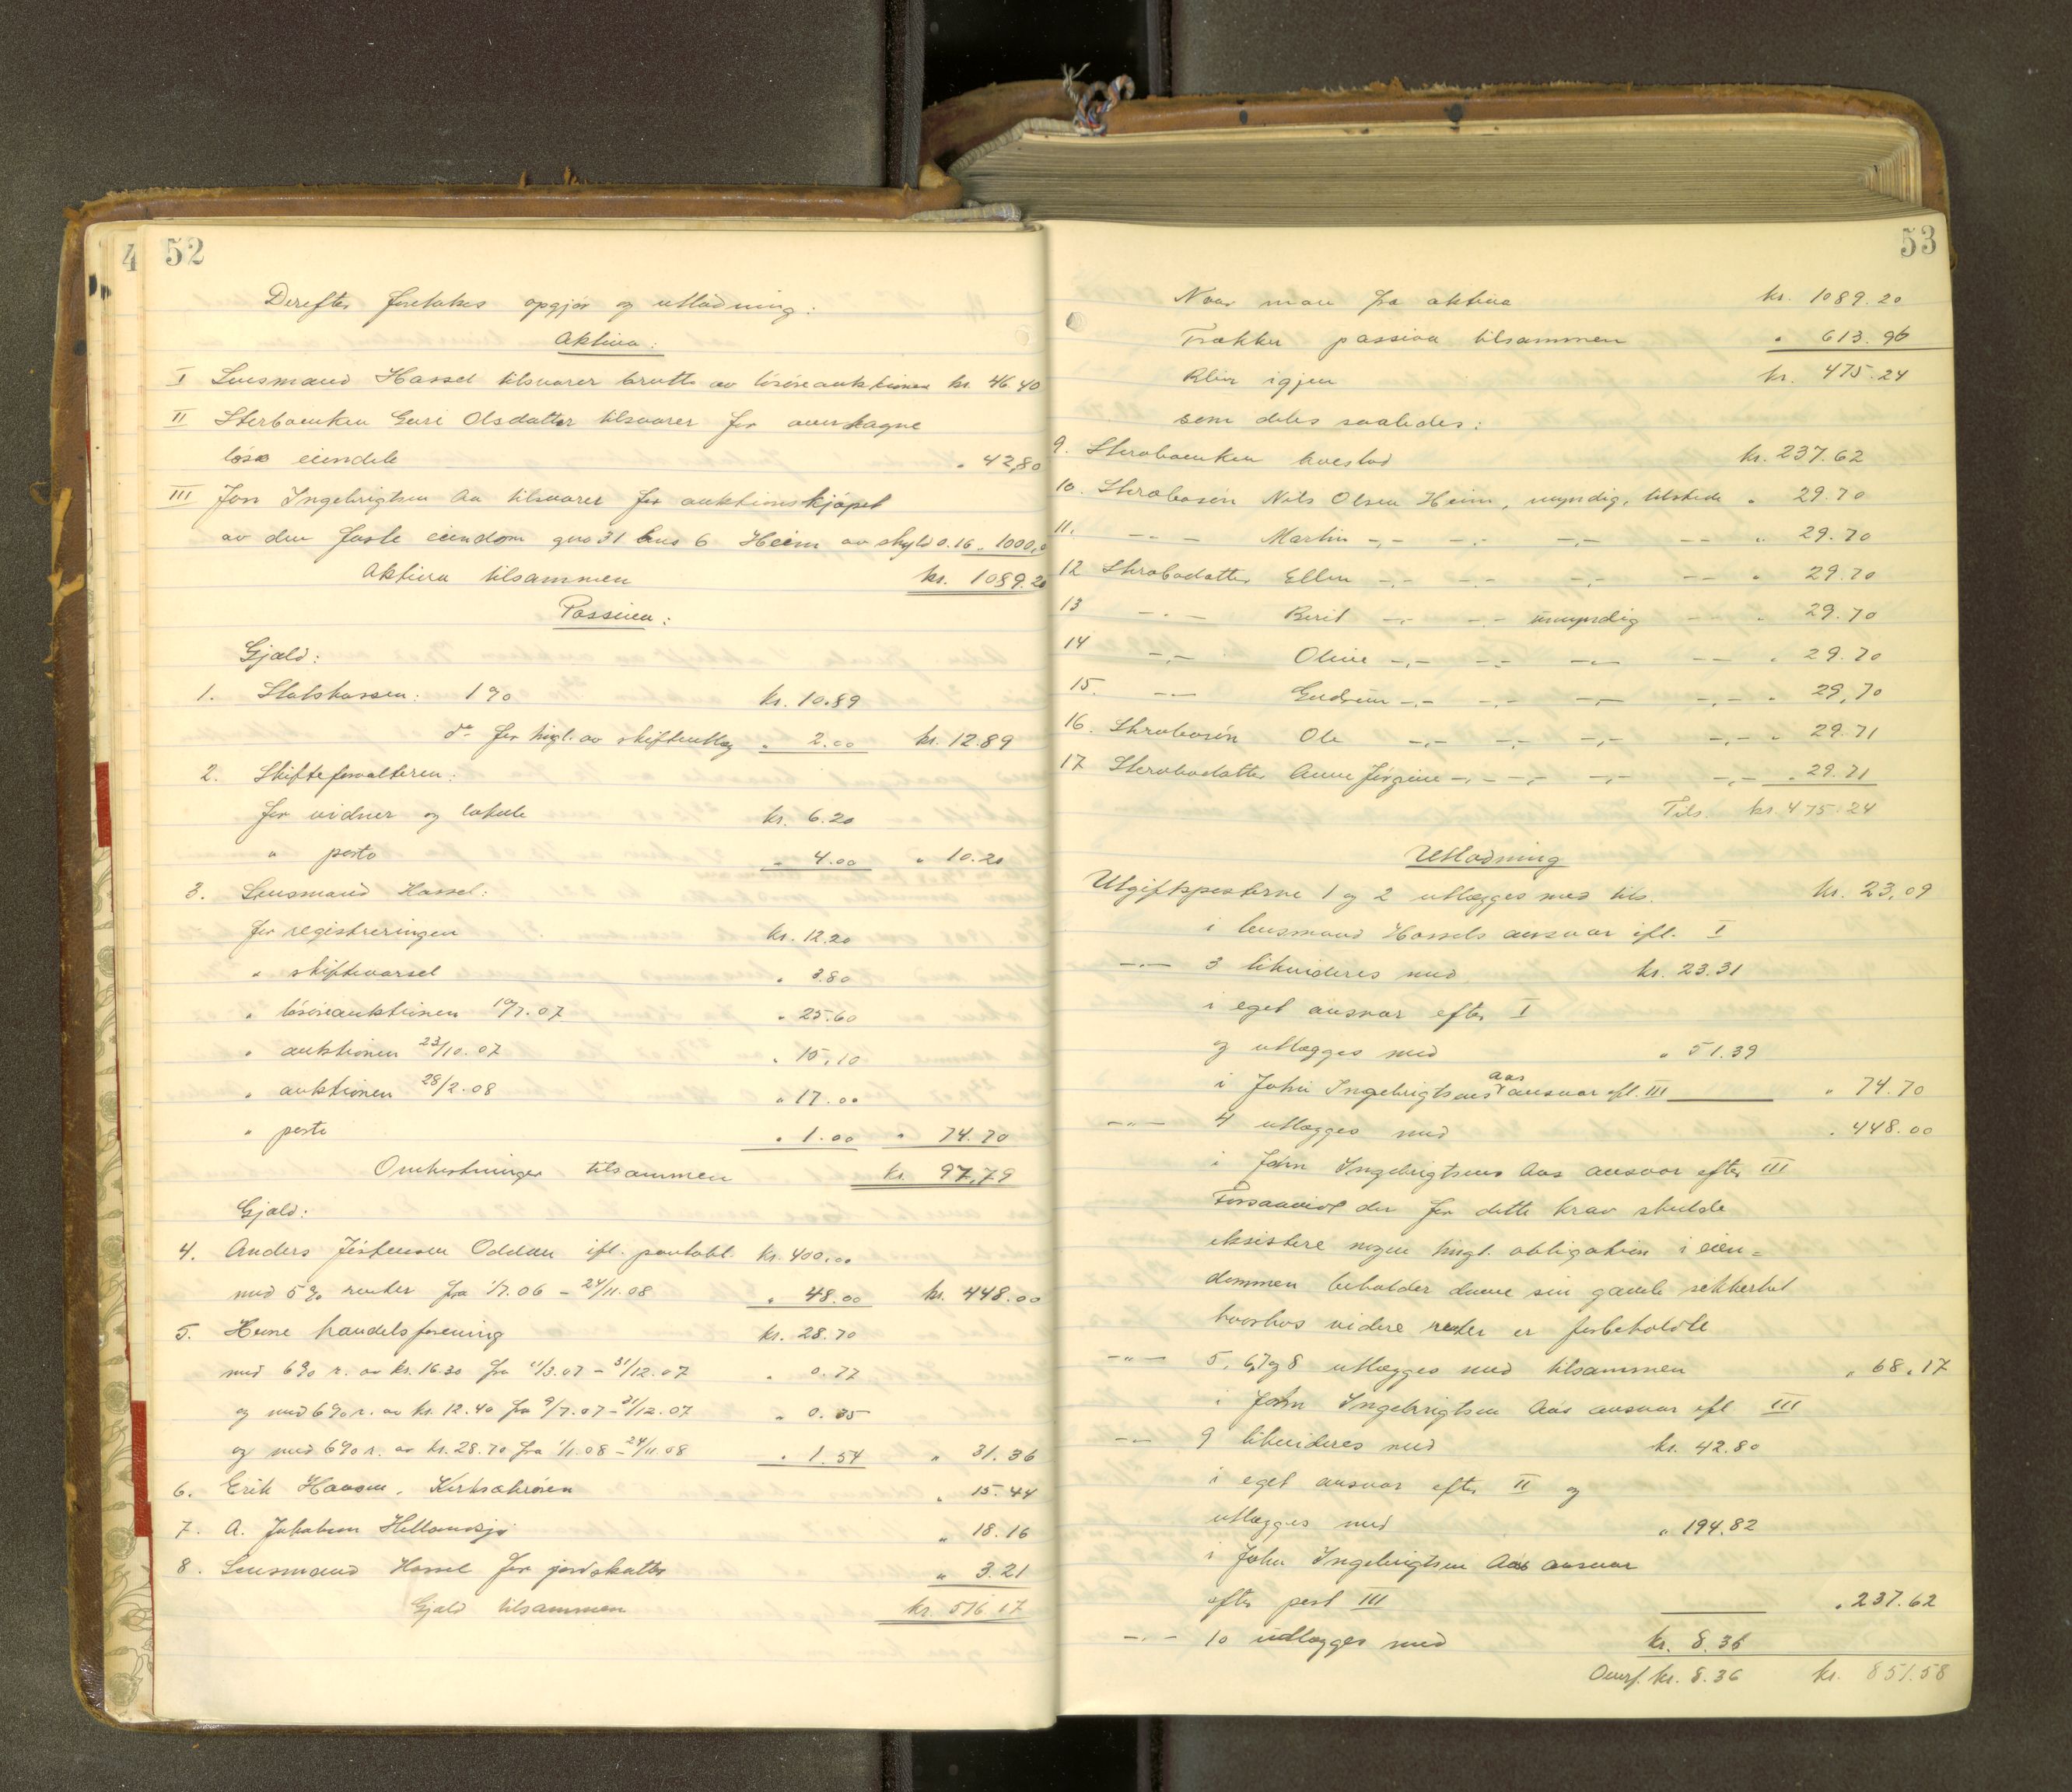 4 52
Derefter foretokes opgjør og utlodning:
Aktiva:
I Lensmand Hassel tilsvarer brutto av løsøreauktionen kr. 46.40
II Sterboenken Guri Olsdatter tilsvarer for overtagne
løse eiendele " 42,80
III Jon Ingebrigtsen Aa tilsvarer for auktionskjøpet
av den faste eiendom gno 31 bno 6 Heim av skyld 0.16 " 1000,0
Aktiva tilsammen kr. 1089.20
Passiva:
Gjæld:
1. Statskassen: 1% kr. 10.89
do for tingl. av skifteutlæg " 2.00 kr. 12.89
2. Skifteforvalteren:
for vidner og lokale kr. 6.20
" porto " 4.00 " 10.20
3. Lensmand Hassel:
for registreringen kr. 12.20
" skiftevarsel " 3.80
" løsøreauktionen 10/7.07 " 25.60
" auktionen 23/10.07 " 15.10
" auktionen 28/2.08 " 17.00
" porto " 1.00 " 74.70
Omkostninger tilsammen kr. 97,79
Gjæld:
4. Anders Jøstensen Oddan ifl. pantobl. kr. 400,00
med 5% renter fra 1/7.06 - 24/11.08 " 48.00 kr. 448.00
5. Hevne handelsforening kr. 28.70
med 6% r. av kr. 16.30 fra 11/3.07 - 31/12.07 " 0.77
og med 6% r. av kr. 12.40 fra 9/7.07 - 31/12.07 " 0.35
og med 6% r. av kr. 28.70 fra 1/1.08 - 24/11.08 " 1.54 " 31.36
6. Erik Hansen, Kirksæterøren " 15.44
7. A. Jakobsen Hellandsjø " 18.16
8. Lensmand Hassel for jordskatter " 3.21
Gjæld tilsammen kr. 516 17
53
Naar man fra aktiva kr. 1089.20
Trækker passiva tilsammen " 613.96
Blir igjen kr. 475.24
som deles saaledes:
9. Sterboenken hoeslod kr. 237.62
10. Sterbosøn Nils Olsen Heim, myndig, tilstede " 29.70
11. -"- Martin -"- -"- -"- -"- " 29.70
12 Sterbodatter Ellen -"- -"- -"- -"- " 29.70
13 -"- Berit -"- -"- umyndig -"- " 29.70
14 -"- Oline -"- -"- -"- -"- " 29.70
15. -"- Gudrun -"- -"- -"- -"- " 29,70
16. Sterbosøn Ole -"- -"- -"- -"- " 29.71
17 Sterbodatter Anne Jørgine -"- -"- -"- -"- " 29.71
Tils. kr 475.24
Utlodning
Utgiftsposterne 1 og 2 utlægges med tils. kr. 23,09
i lensmand Hassels ansvar ifl. I
-"- 3 likvideres med kr. 23.31
i eget ansvar efter I
og utlægges med " 51.39
i John Ingebrigtsens Aas ansvar ifl. III " 74.70
-"- 4 utlægges med " 448.00
i John Ingebrigtsens Aas ansvar efter III
Forsaavidt der for dette krav skulde
eksistere nogen tingl. obligation i eien=
dommen beholder denne sin gamle sikkerhet
hvorhos videre renter er forbeholdt
-"- 5, 6, 7 og 8 utlægges med tilsammen " 68.17
i John Ingebrigtsen Aas ansvar ifl III
-"- 9 likvideres med kr. 42.80
i eget ansvar efter II og
utlægges med " 194.82
i John Ingebrigtsen Aas ansvar
efter post III " 237.62
-"- 10 udlægges med kr. 8.36
Overf. kr. 8.36 kr. 851.58